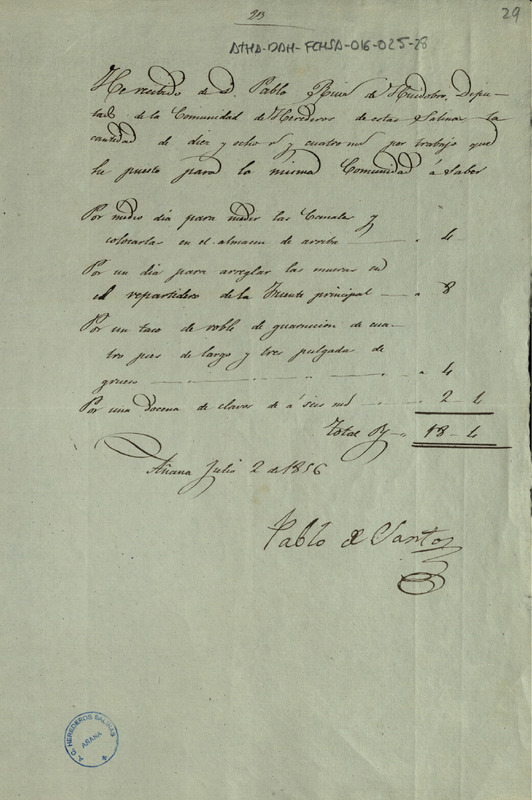 23
29
ATHA-DAH-FCHSA-016-025-28
He recibido de D. Pablo Ruiz de Huidobro, Dipu-
tado de la Comunidad de Herederos de estas Salinas la
cantidad de diez y ocho rs y cuatro ms por trabajo que
he puesto para la misma Comunidad á saber
Por medio dia para meder las Canala y
colocarlas en el almacen de arriba " 4
Por un dia para arreglar las mueras en
el repartidero de la Fuente principal " 8
Por un taco de roble de guarnicion de cua-
tro pies de largo y tres pulgada de
grueso " 4
Por una docena de clavos de á seis ms 2 - 4
Total Rs 18 - 4
Añana Julio 2 de 1856
Pablo de Santos
A. C. HEREDEROS SALINAS
AÑANA